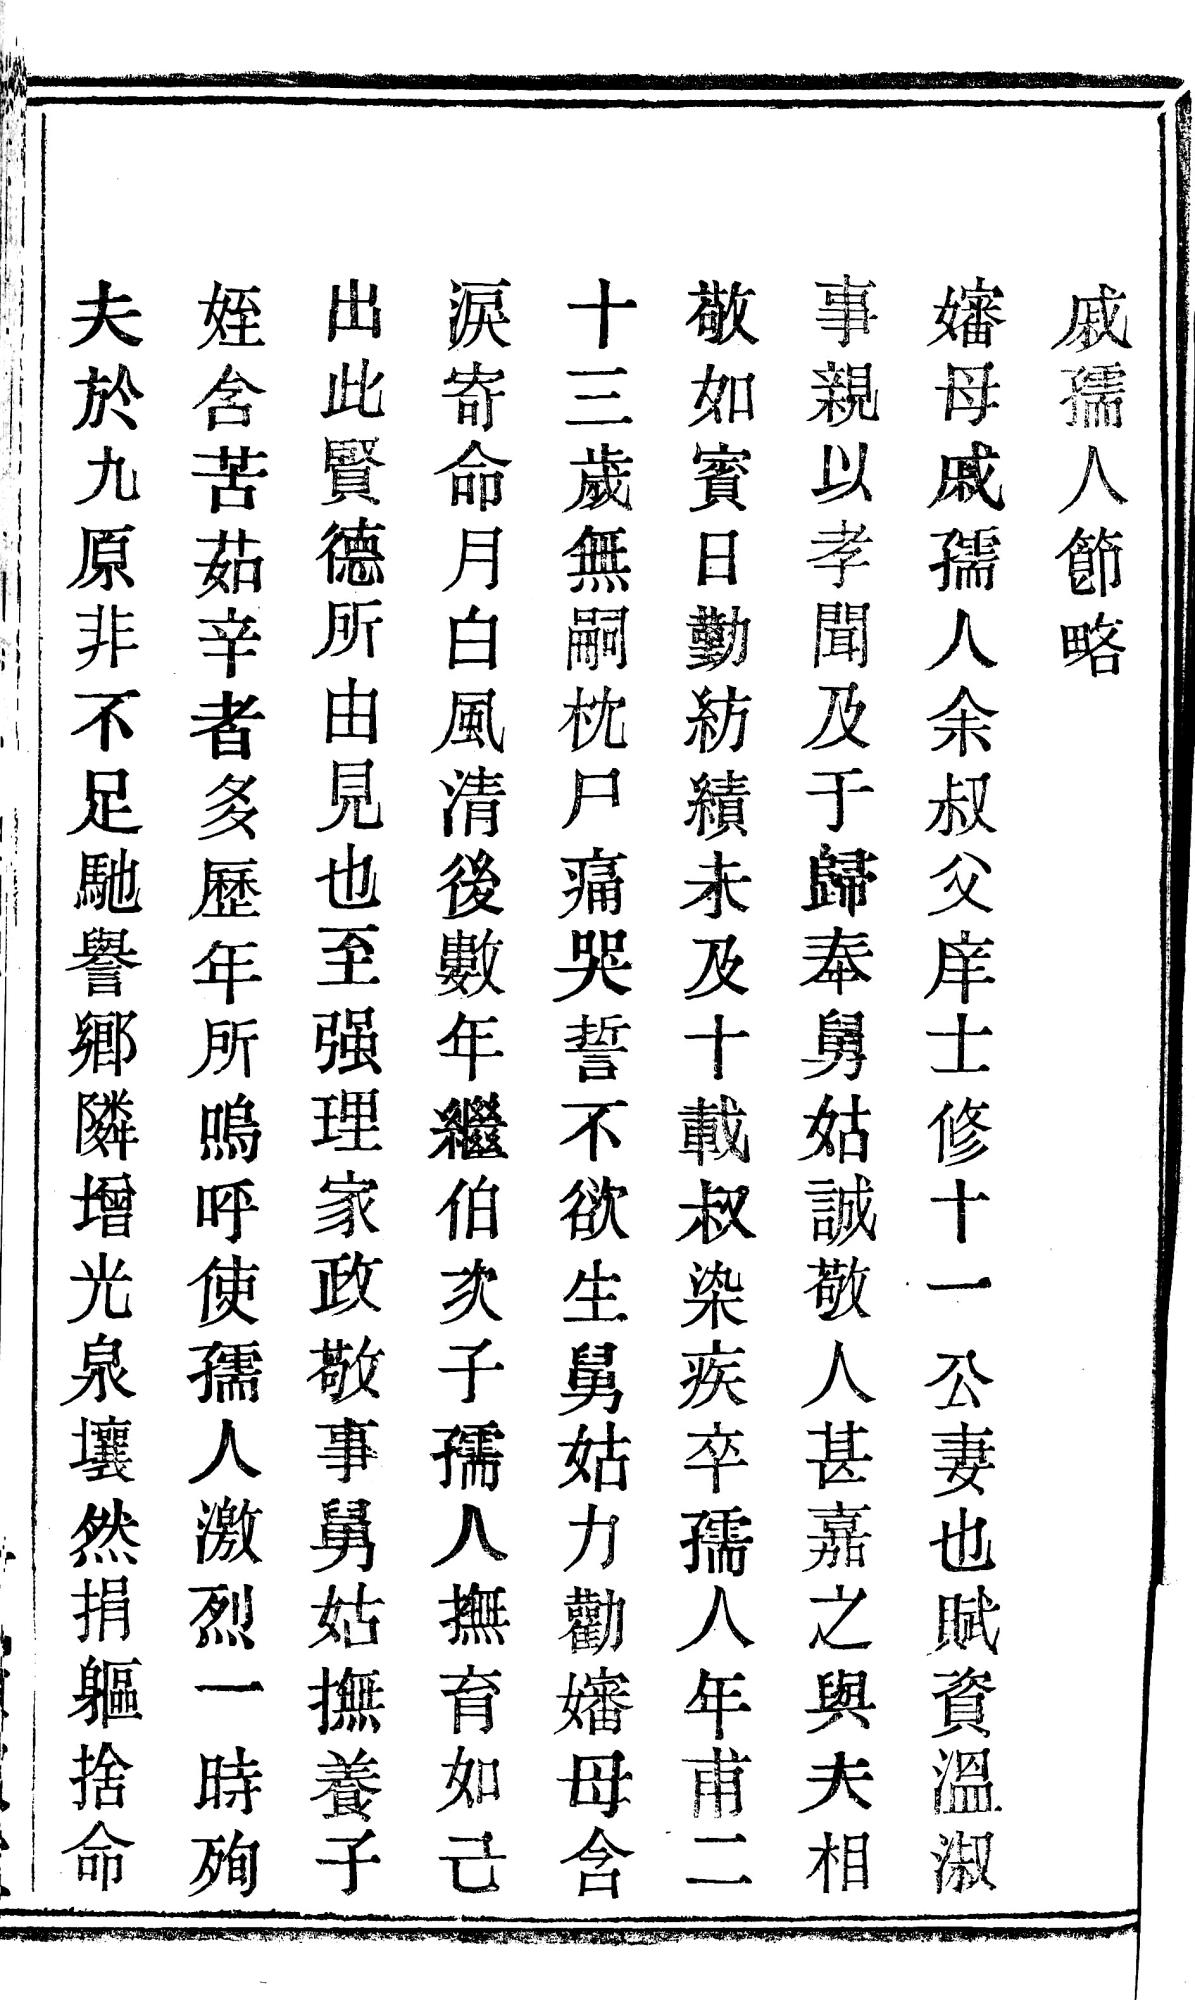 戚孺人節略
嬸母戚孺人余叔父庠士修十一公妻也賦資溫淑
事親以孝聞及于歸奉舅姑誠敬人甚嘉之與夫相
敬如賓日勤紡績未及十載叔染疾卒孺人年甫二
十三歲無嗣枕尸痛哭誓不欲生舅姑力勸嬸母含
淚寄命月白風清後數年繼伯次子孺人撫育如己
出此賢德所由見也至强理家政敬事舅姑撫養子
姪含苦茹辛者多歷年所嗚呼使孺人激烈一時殉
夫於九原非不足馳譽鄉隣增光泉壤然捐軀捨命